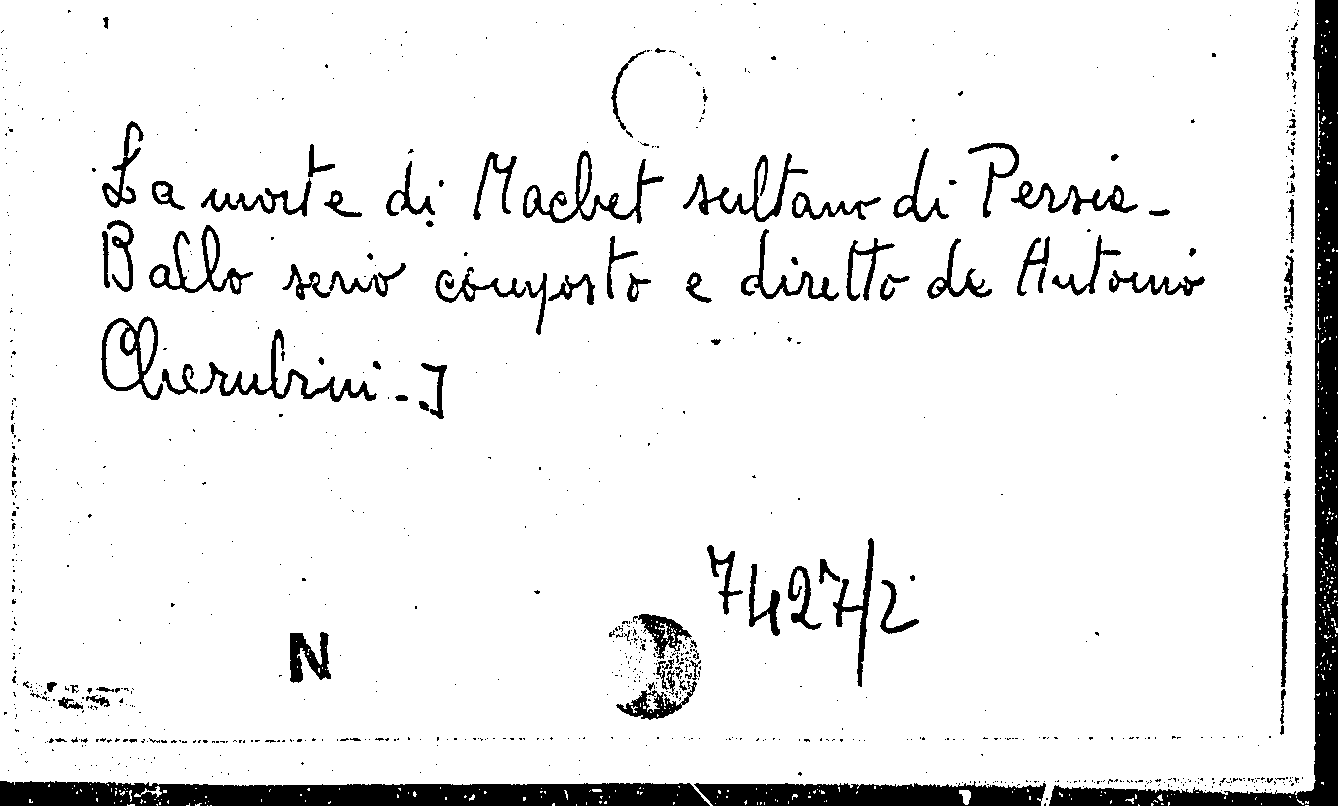 La morte di Macbet sultano di Persia -
Ballo serio composto e diretto da Antonio
Cherubini - J
7427/2
N